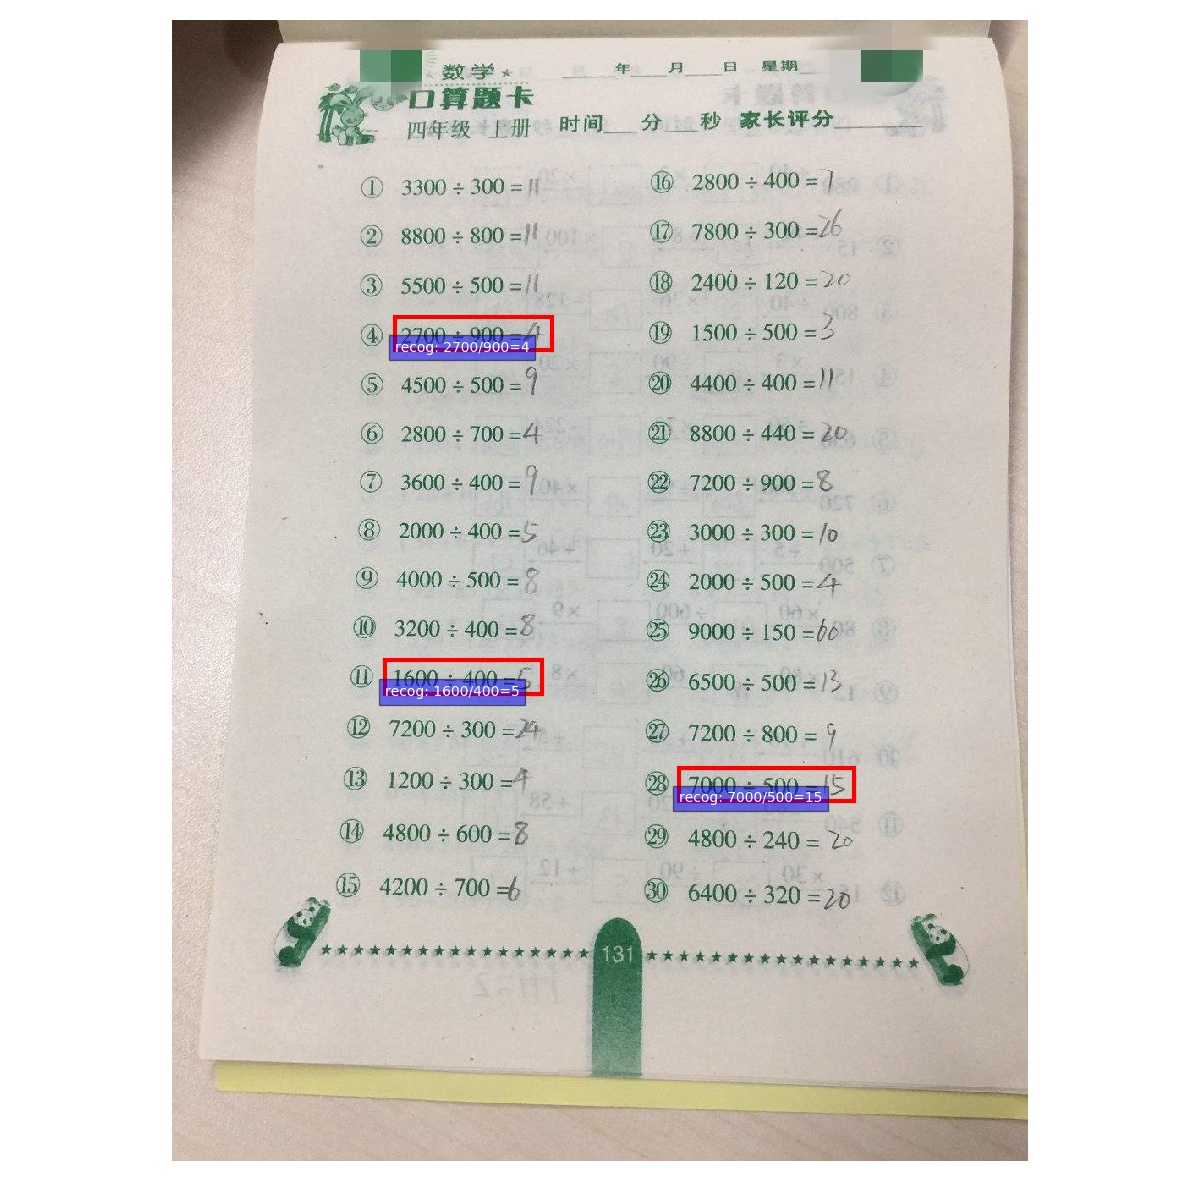 数学 ____年____月____日 星期____
口算题卡
四年级 上册 时间____分____秒 家长评分________
① 3300÷300=11
② 8800÷800=11
③ 5500÷500=11
④ 2700÷900=4
recog: 2700/900=4
⑤ 4500÷500=9
⑥ 2800÷700=4
⑦ 3600÷400=9
⑧ 2000÷400=5
⑨ 4000÷500=8
⑩ 3200÷400=8
⑪ 1600÷400=5
recog: 1600/400=5
⑫ 7200÷300=24
⑬ 1200÷300=4
⑭ 4800÷600=8
⑮ 4200÷700=6
⑯ 2800÷400=7
⑰ 7800÷300=26
⑱ 2400÷120=20
⑲ 1500÷500=3
⑳ 4400÷400=11
㉑ 8800÷440=20
㉒ 7200÷900=8
㉓ 3000÷300=10
㉔ 2000÷500=4
㉕ 9000÷150=60
㉖ 6500÷500=13
㉗ 7200÷800=9
㉘ 7000÷500=15
recog: 7000/500=15
㉙ 4800÷240=20
㉚ 6400÷320=20
131